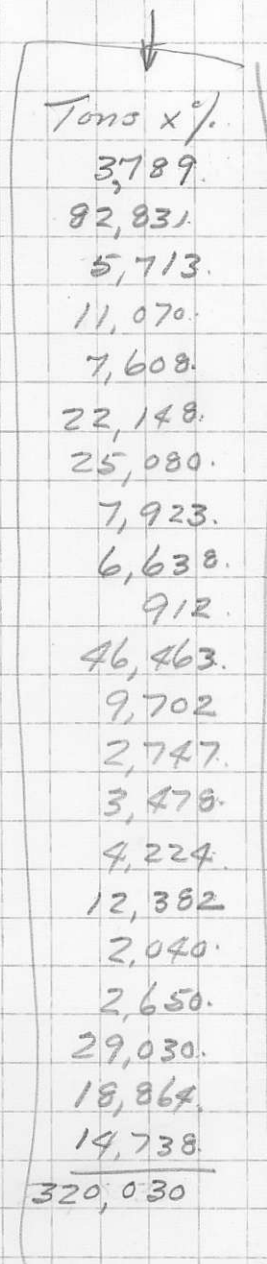 Tons x %
3,789.
82,831
5,713.
11,070.
7,608.
22,148.
25,080.
7,923.
6,638.
912.
46,463.
9,702
2,747.
3,478.
4,224.
12,382
2,040.
2,650.
29,030.
18,864.
14,738.
320,030